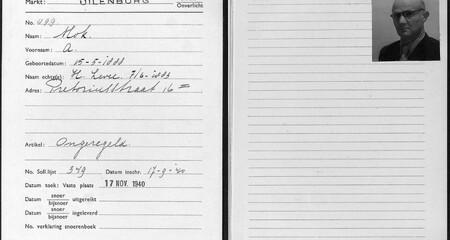 Markt: UILENBURG Onverlicht
No. 499.
Naam: Mok.
Voornaam: A.
Geboortedatum: 15-5-1888
Naam echtg(te): H. Levie 7/6-1883
Adres: Pretoriusstraat 16
Artikel: Ongeregeld.
No. Soll.lijst 349 Datum inschr. 17-9-'40
Datum toek: Vaste plaats 17 NOV. 1940
Datum snoer bijsnoer uitgereikt
Datum snoer bijsnoer ingeleverd
No. verklaring snoerenboek